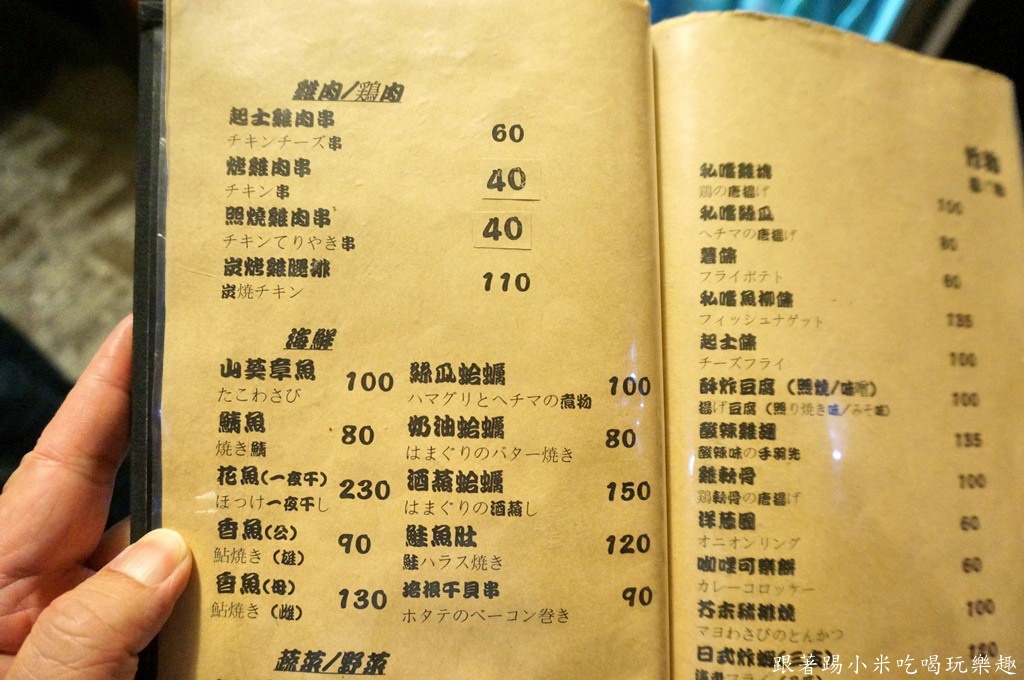 雞肉/鶏肉
起士雞肉串 60
チキンチーズ串
烤雞肉串 40
チキン串
照燒雞肉串 40
チキンてりやき串
炭烤雞腿排 110
炭焼チキン
海鮮
山葵章魚 100
たこわさび
鯖魚 80
焼き鯖
花魚(一夜干) 230
ほっけ一夜干し
香魚(公) 90
鮎焼き (雄)
香魚(母) 130
鮎焼き (雌)
絲瓜蛤蠣 100
ハマグリとヘチマの煮物
奶油蛤蠣 80
はまぐりのバター焼き
酒蒸蛤蠣 150
はまぐりの酒蒸し
鮭魚肚 120
鮭ハラス焼き
培根干貝串 90
ホタテのベーコン巻き
蔬菜/野菜
私嚐雞塊 100
鶏の唐揚げ
私嚐絲瓜 80
ヘチマの唐揚げ
薯條 60
フライポテト
私嚐魚柳條 135
フィッシュナゲット
起士條 100
チーズフライ
酥炸豆腐 (照燒/味噌) 100
揚げ豆腐 (照り焼き味/みそ味)
酸辣雞翅 135
酸辣味の手羽先
雞軟骨 100
鶏軟骨の唐揚げ
洋蔥圈 60
オニオンリング
咖哩可樂餅 60
カレーコロッケー
芥末豬排燒 100
マヨわさびのとんかつ
日式炸蝦
跟著踢小米吃喝玩樂趣